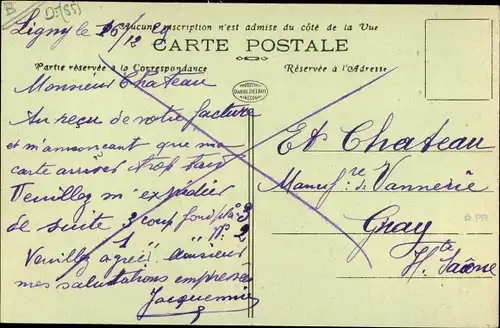 B
D7(55)
Ligny le 26/12 29
Aucune inscription n'est admise du côté de la Vue
CARTE POSTALE
Partie réservée à la Correspondance
Réservée à l'Adresse
Monsieur Chateau
Au reçu de votre facture
et m'annonçant que ma
carte arrivée trop tard
Veuillez m'expédier
de suite 3 coup fond plat 3
1 " " N° 2
Veuillez agréé Monsieur
mes salutations empressées
Jacquemin
Et Chateau
Manufre de Vannerie
Gray
Hte Saône